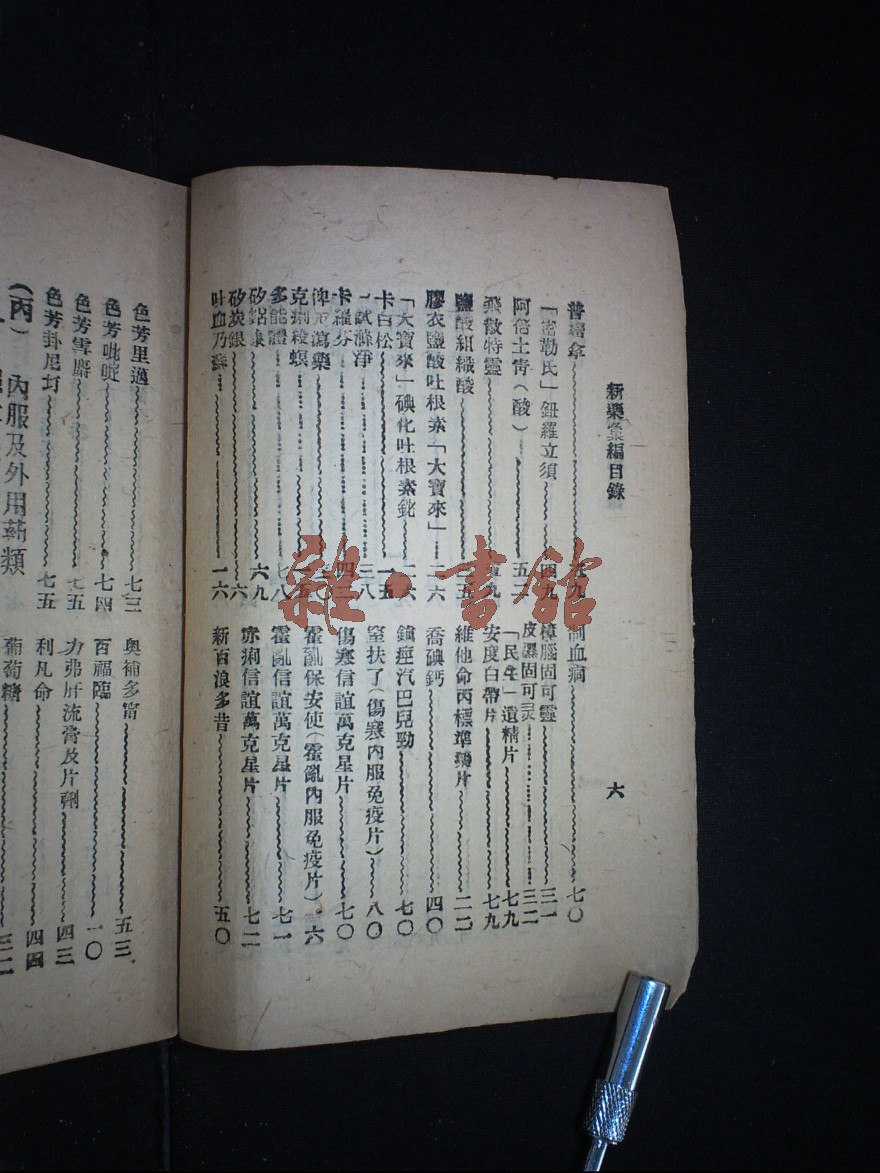 新藥彙編目錄
六
「富勒氏」鈕羅立須 四九
阿倍士膏（酸） 五二
飛散特靈
鹽酸組織酸 二五
膠衣鹽酸吐根素「大寶來」 二六
「大寶來」碘化吐根素鉍 二六
卡白松 一五
一試滌淨 三八
卡羅芬 四二
克痢殺蟆
多能體 七八
矽鋁康 六九
矽炭銀 六
吐血乃穌 一六
制血痢 七〇
樟腦固可靈 三一
皮羅固可靈 三二
「民生」遺精片 七九
安度白帶片 七九
維他命丙標準藥片 二二
喬碘鈣 四〇
鎭痙汽巴兒勁 七〇
窒扶了（傷寒內服免疫片） 八〇
傷寒信誼萬克星片 七〇
霍亂保安使（霍亂內服免疫片） 六
霍亂信誼萬克星片 七一
赤痢信誼萬克星片 七二
新百浪多昔 五〇
色芳里邁 七三
色芳吡啶 七四
色芳雪麝 七五
色芳卦尼汀 七五
（丙）內服及外用藥類
奥補多富 五三
百福臨 一〇
力弗肝流膏及片劑 四三
利凡命 四四
葡萄糖 三二
雜·書館